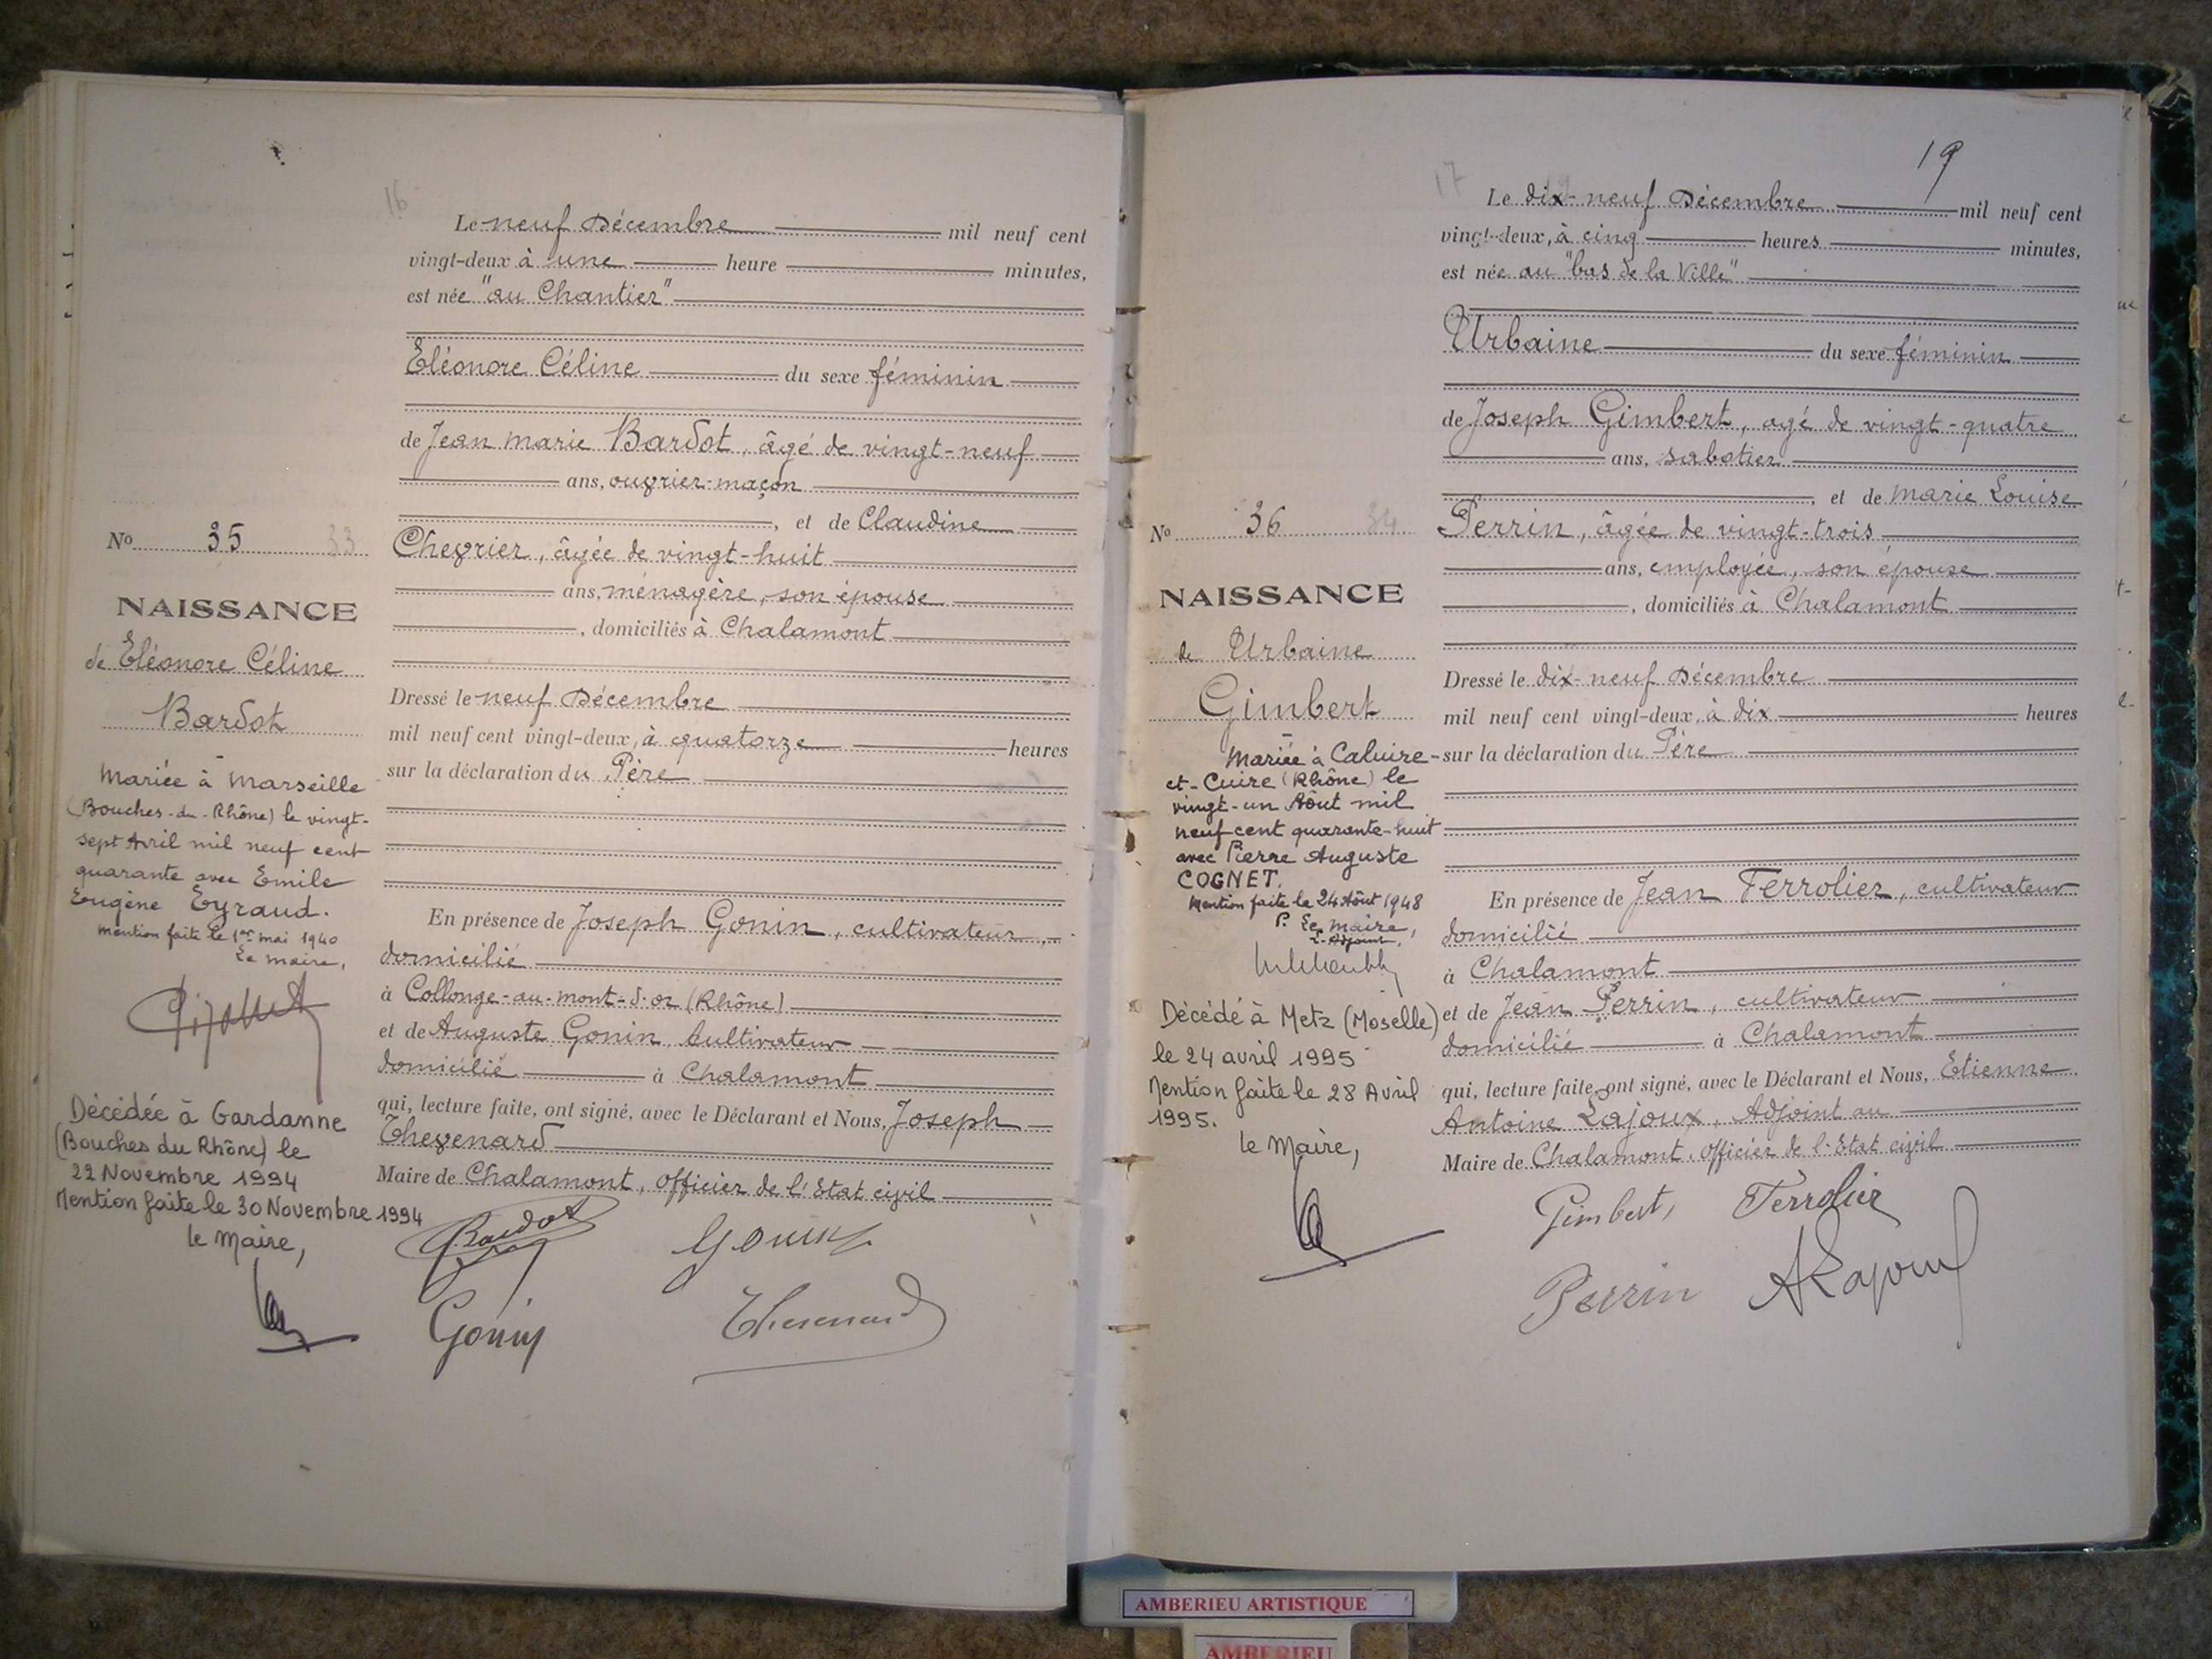 16
Le neuf Décembre mil neuf cent
vingt-deux à une heure minutes,
est née "au Chantier"
Eléonore Céline du sexe féminin
de Jean marie Bardot, âgé de vingt-neuf
ans, ouvrier-maçon
, et de Claudine
Chevrier, âgée de vingt-huit
ans, ménagère, son épouse
, domiciliés à Chalamont
Dressé le neuf Décembre
mil neuf cent vingt-deux, à quatorze heures
sur la déclaration du Père
En présence de Joseph Gonin, cultivateur,
domicilié
à Collonge-au-mont-d'or (Rhône)
et de Auguste Gonin, cultivateur
domicilié à Chalamont
qui, lecture faite, ont signé, avec le Déclarant et Nous, Joseph
Thevenard
Maire de Chalamont, officier de l'Etat civil
Bardot Gonin
Gonin Thevenard
No 35 33
NAISSANCE
de Eléonore Céline
Bardot
Mariée à Marseille
(Bouches-du-Rhône) le vingt-
sept Avril mil neuf cent
quarante avec Emile
Eugène Eyraud.
Mention faite le 1er mai 1940
Le Maire,
Décédée à Gardanne
(Bouches du Rhône) le
22 Novembre 1994
Mention faite le 30 Novembre 1994
le Maire,
19
17
Le dix-neuf Décembre mil neuf cent
vingt-deux, à cinq heures minutes,
est née au "bas de la Ville"
Urbaine du sexe féminin
de Joseph Gimbert, agé de vingt-quatre
ans, sabotier
, et de Marie Louise
Perrin, âgée de vingt-trois
ans, employée, son épouse
, domiciliés à Chalamont
Dressé le dix-neuf Décembre
mil neuf cent vingt-deux, à dix heures
sur la déclaration du Père
En présence de Jean Ferrolier, cultivateur
domicilié
à Chalamont
et de Jean Perrin, cultivateur
domicilié à Chalamont
qui, lecture faite, ont signé, avec le Déclarant et Nous, Etienne
Antoine Lajoux, Adjoint au
Maire de Chalamont, officier de l'Etat civil
Gimbert, Ferrolier
Perrin A Lajoux
No 36 34
NAISSANCE
de Urbaine
Gimbert
Mariée à Caluire-
et-Cuire (Rhône) le
vingt-un Août mil
neuf cent quarante-huit
avec Pierre Auguste
COGNET.
Mention faite le 24 Août 1948
P. Le Maire,
L'Adjoint,
Décédé à Metz (Moselle)
le 24 avril 1995
Mention faite le 28 Avril
1995.
le Maire,
AMBERIEU ARTISTIQUE
AMBERIEU